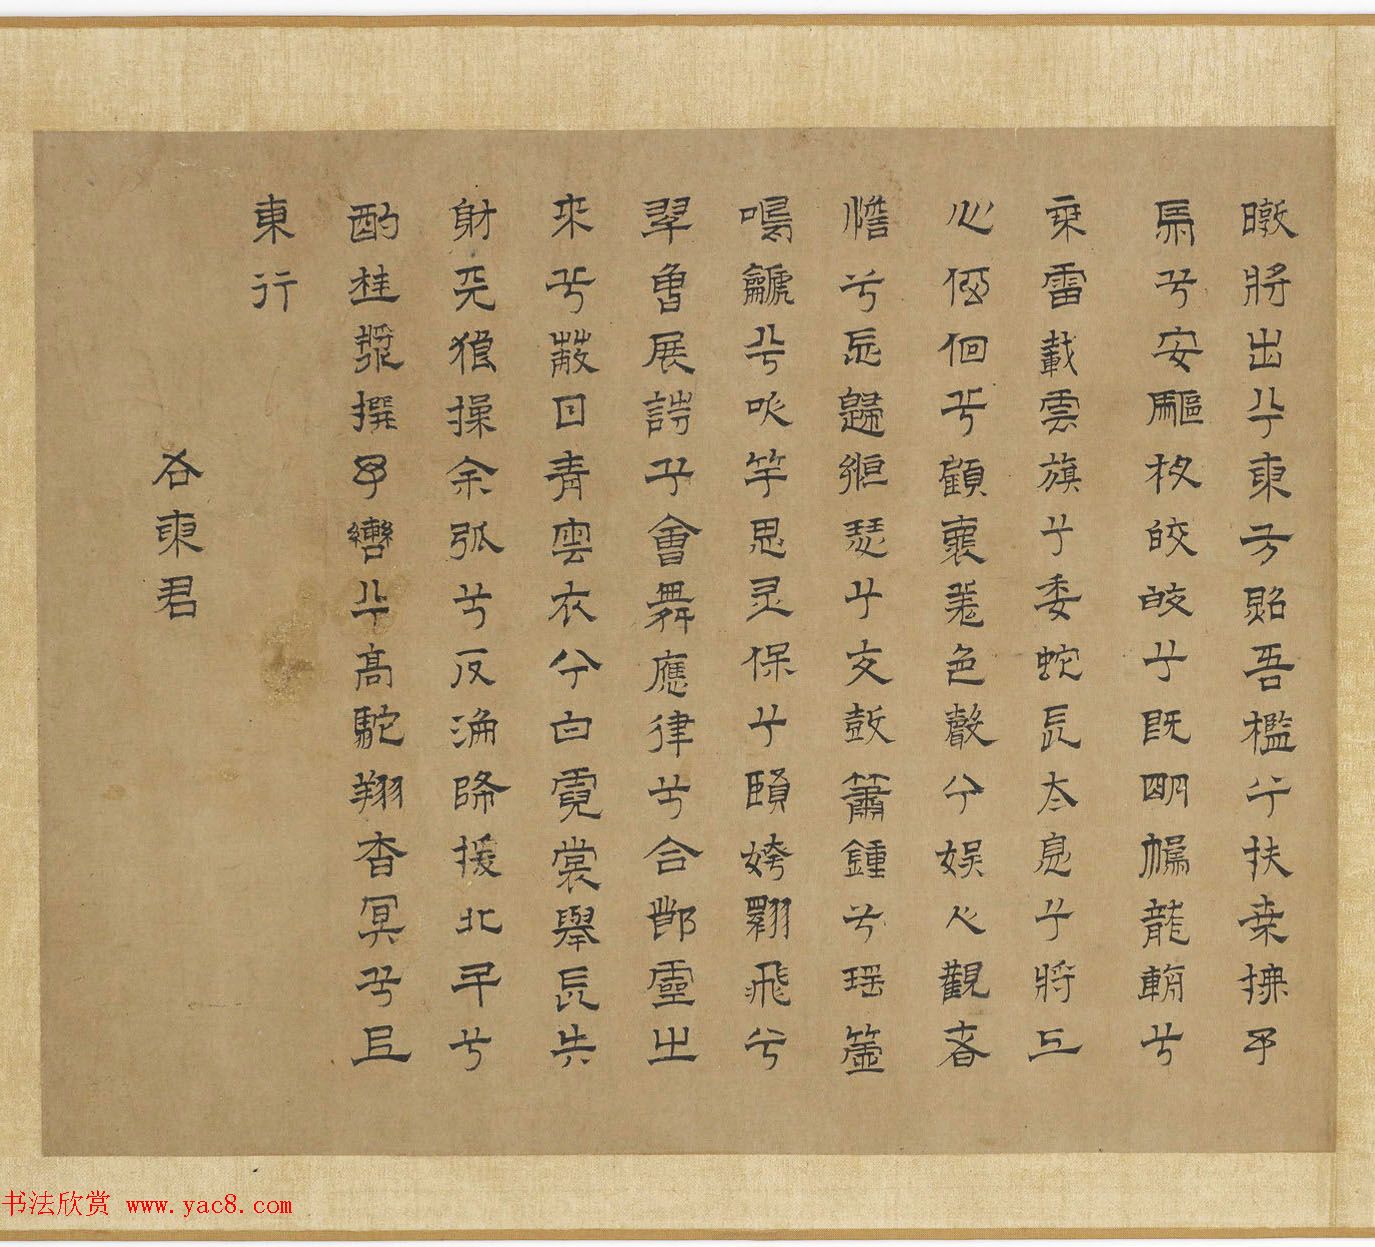 暾將出兮東方照吾檻兮扶桑拂予
馬兮安驅夜皎皎兮既明駕龍輈兮
乘雷載雲旗兮委蛇長太息兮將上
心低佪兮顧懷羌色聲兮娛人觀者
憺兮忘歸緪瑟兮交鼓簫鍾兮瑤簴
鳴鷈兮吹竽思灵保兮賢姱翾飛兮
翠曾展詩兮會舞應律兮合節靈之
來兮蔽日青雲衣兮白霓裳舉長矢
射天狼操余弧兮反淪降援北斗兮
酌桂漿撰予轡兮高駝翔杳冥兮以
東行
右東君
书法欣赏 www.yac8.com